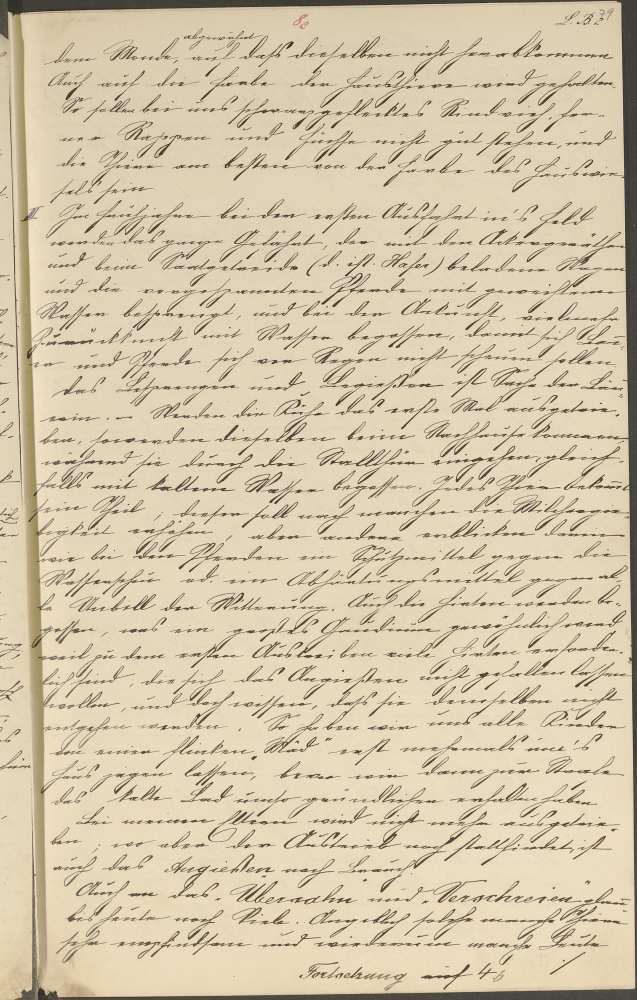 8c
L. B. 2 79
abgewöhnt
dem Monde, auf daß dieselben nicht herabkommen
Auch auf die Farbe der Hausthiere wird gehalten.
So sollen bei uns schwarzgeflecktes Rindvieh, fer-
ner Rappen und Füchse nicht gut stehen, und
die Thiere am besten von der Farbe des Hauswie-
sels sein
II. Im Frühjahre bei der ersten Ausfahrt in's Feld
werden das ganze Gefährt, der mit den Ackergeräthen
und beim Saatgetreide (d. ist. Hafer) beladene Wagen
und die vorgespannten Pferde mit geweihtem
Wasser besprengt, und bei der Ankunft, vielmehr
Zurückkunft mit Wasser begossen, damit sich
und Pferde sich vor Regen nicht scheuen sollen
das Besprengen und Begießen ist Sache der Bäu-
erin. – Werden die Kühe das erste Mal ausgetrie-
ben, so werden dieselben beim Nachhausekommen,
während sie durch die Stallthür eingehen, gleich-
falls mit kaltem Wasser begossen. Jedes Thier bekommt
sein Theil; dieses soll nach manchen die Milchergie-
bigkeit erhöhen, aber andere erblicken darin
wie bei den Pferden ein Schutzmittel gegen die
Wasserscheu od. ein Abhärtungsmittel gegen al-
le Unbill der Witterung. Auch die Hirten werden be-
gossen, was ein großes Gaudium gewöhnlich wird
weil zu dem ersten Austreiben viele Hirten erforder-
lich sind, die sich das Angießen nicht gefallen lassen
wollen, und doch wissen, daß sie demselben nicht
entgehen werden. So haben wir uns alle Kinder
von einer flinken "Mäd" erst mehrmals um's
Haus jagen lassen, bevor wir dann zur Strafe
das kalte Bad umso gründlicher erhalten haben
Bei meinen Eltern wird nicht mehr ausgetrie-
ben; wo aber der Austrieb noch stattfindet, ist
auch das Angießen noch Brauch.
Auch an das "Übersehn" und "Verschreien" glau-
ben heute noch Viele. Angeblich solche manche Thiere
sehr empfindsam und wiederum manche Leute
Fortsetzung auf 4b ./.